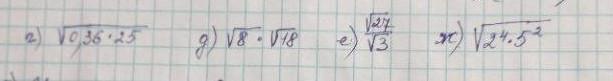 г) √0,36·25 д) √8 · √18 е) √27/√3 ж) √2⁴·5²